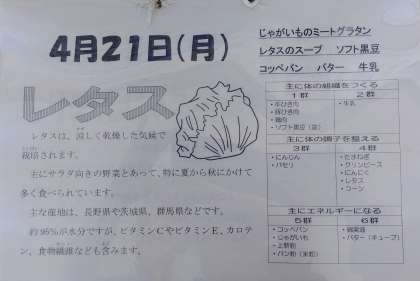 4月21日(月)
じゃがいものミートグラタン
レタスのスープ ソフト黒豆
コッペパン バター 牛乳
レタス
レタスは、涼しく乾燥した気候で
栽培されます。
主にサラダ向きの野菜とあって、特に夏から秋にかけて
多く食べられています。
主な産地は、長野県や茨城県、群馬県などです。
約95%が水分ですが、ビタミンCやビタミンE、カロテ
ン、食物繊維なども含みます。
主に体の組織をつくる
1群 2群
・牛ひき肉 ・牛乳
・豚ひき肉
・鶏肉
・ソフト黒豆(豆)
主に体の調子を整える
3群 4群
・にんじん ・たまねぎ
・パセリ ・グリンピース
・にんにく
・レタス
・コーン
主にエネルギーになる
5群 6群
・コッペパン
・じゃがいも ・バター(キューブ)
・上新粉
・パン粉(米粉)